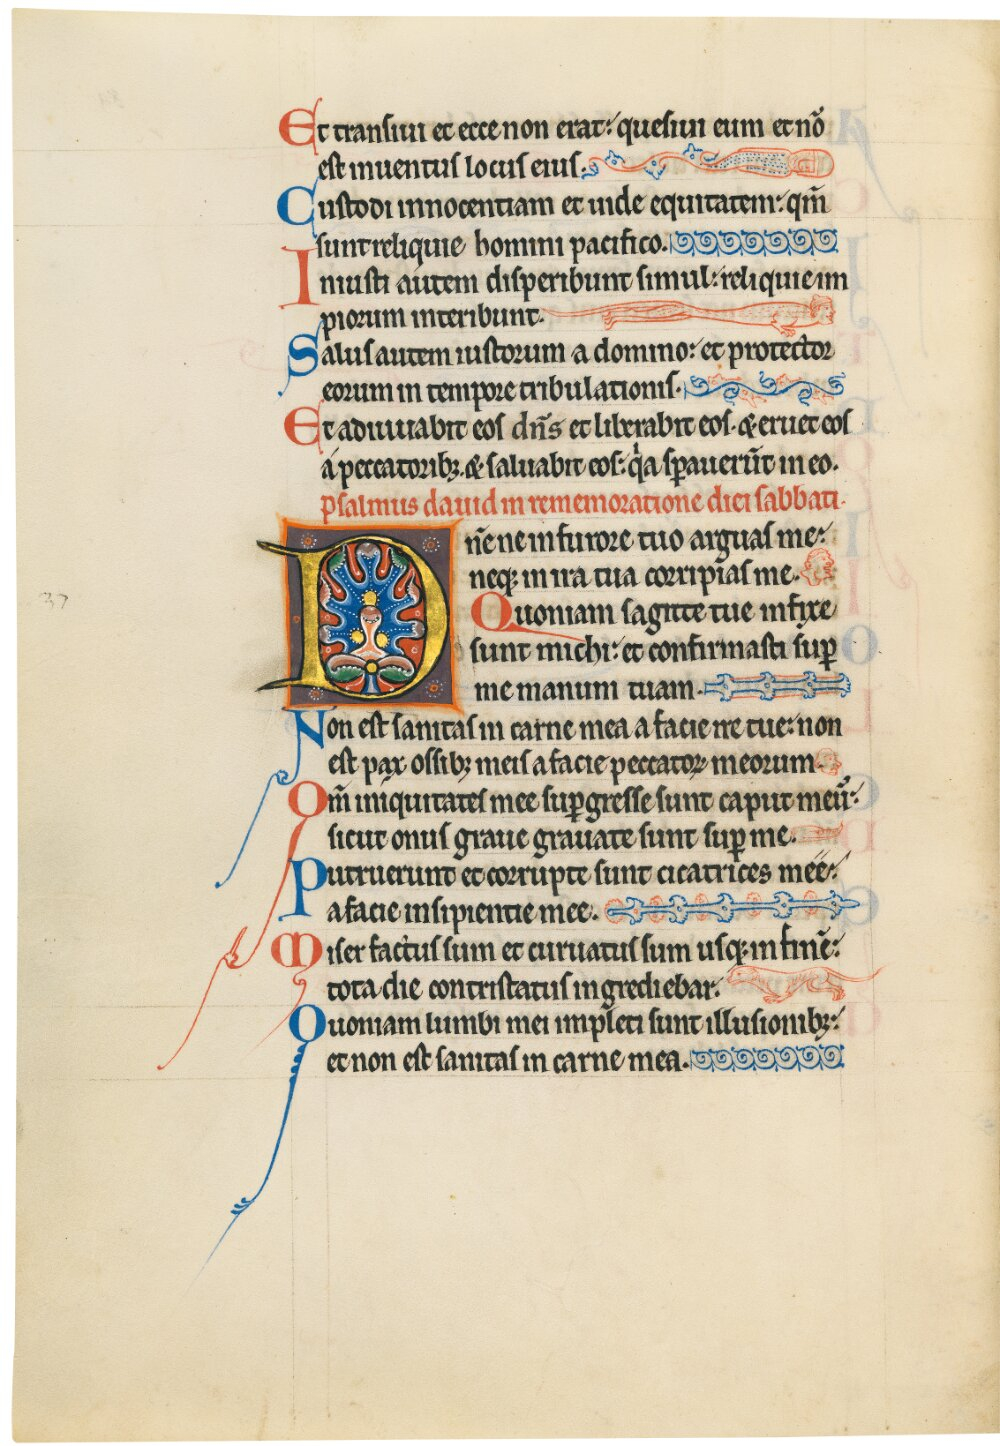 Et transiui et ecce non erat: quesiui eum et nō
est inuentus locus eius.
Custodi innocentiam et uide equitatem: qm̄
sunt reliquie homini pacifico.
Iniusti autem disperibunt simul: reliquie im
piorum interibunt.
Salus autem iustorum a domino: et protector
eorum in tempore tribulationis.
Et adiuuabit eos dn̄s et liberabit eos. & eruet eos
a peccatoribꝫ. & saluabit eos: q̓a sꝑauerūt in eo.
psalmus dauid in rememoratione diei sabbati.
Dn̄e ne in furore tuo arguas me:
neqꝫ in ira tua corripias me.
Quoniam sagitte tue infixe
sunt michi: et confirmasti suꝑ
me manum tuam.
Non est sanitas in carne mea a facie ire tue: non
est pax ossibꝫ meis a facie peccatoꝝ meorum.
Qm̄ iniquitates mee suꝑgresse sunt caput meū:
sicut onus graue grauate sunt suꝑ me.
Putruerunt et corrupte sunt cicatrices mee:
a facie insipientie mee.
Miser factus sum et curuatus sum usqꝫ in finē:
tota die contristatus ingrediebar.
Quoniam lumbi mei impleti sunt illusionibꝫ:
et non est sanitas in carne mea.
37